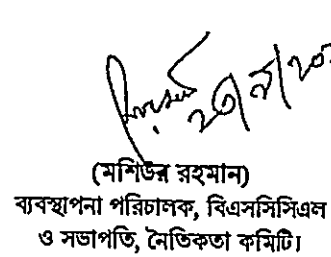 ২৩/৯/২০
(মশিউর রহমান)
ব্যবস্থাপনা পরিচালক, বিএসসিসিএল
ও সভাপতি, নৈতিকতা কমিটি।